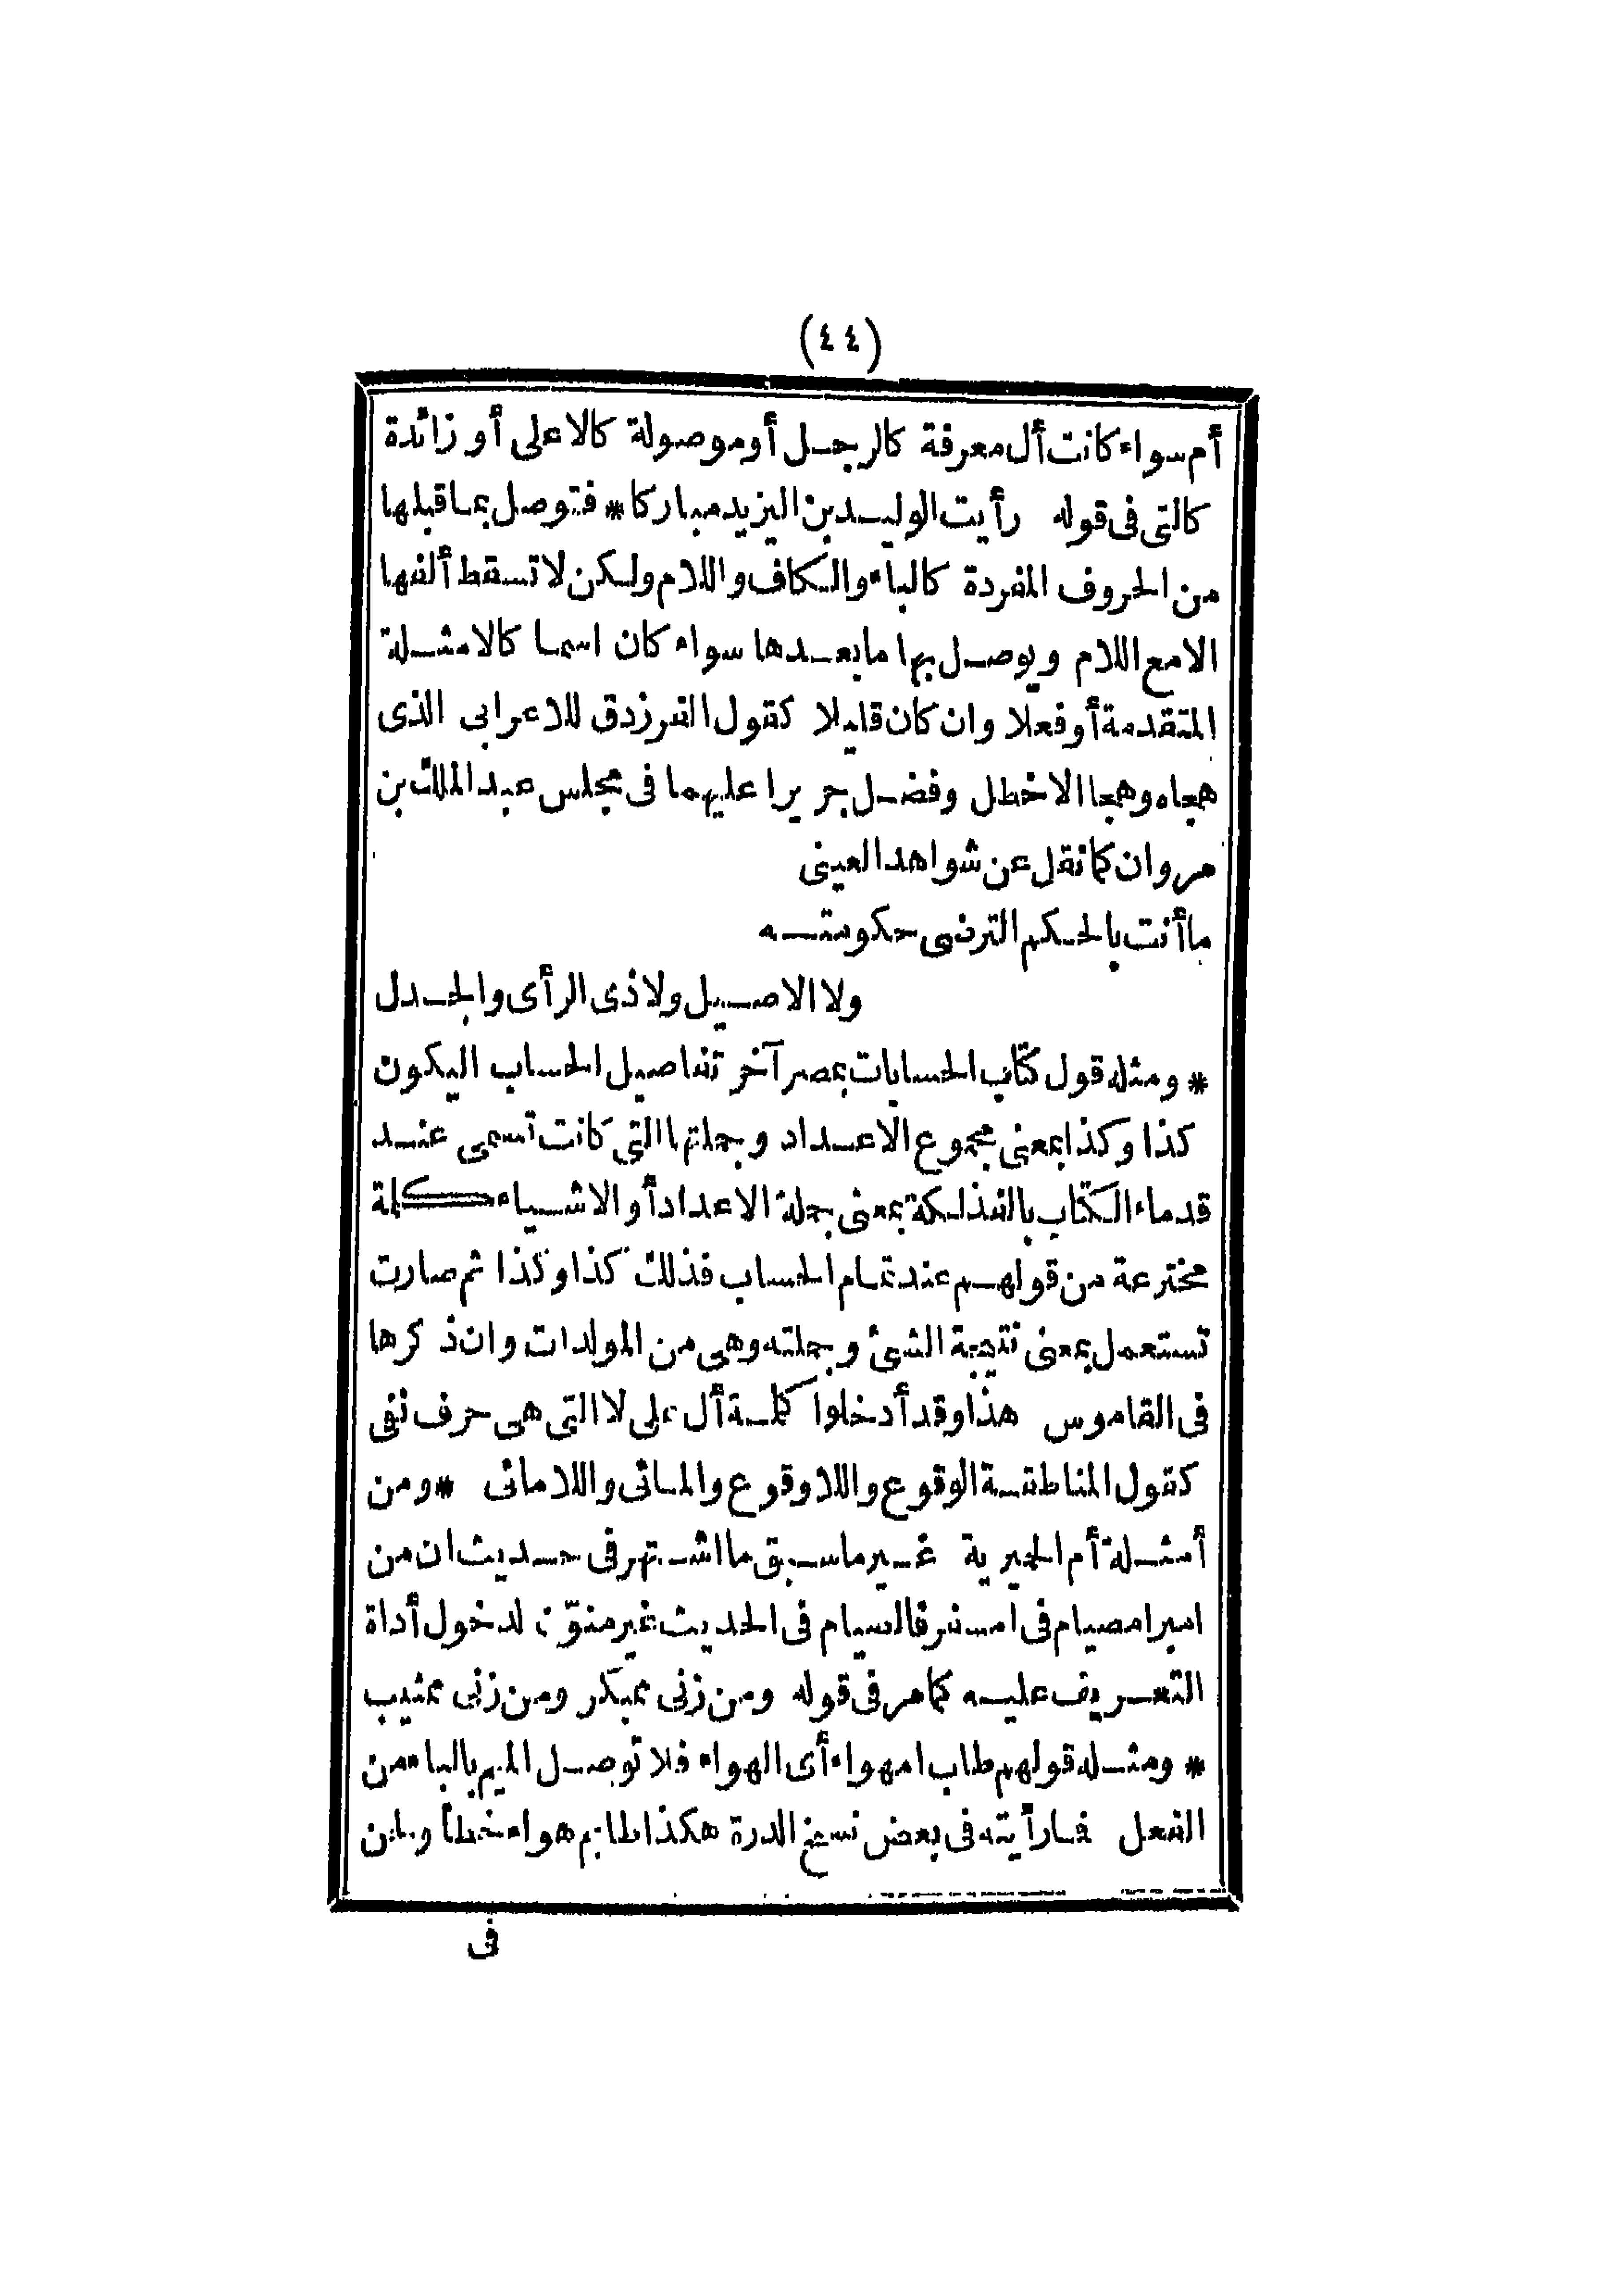 (٤٤)
أم سواء كانت أل معرفة كالرجل أو موصولة كالاعلى أو زائدة
كالتى فى قوله رأيت الوليد بن اليزيد مباركا * فتوصل بما قبلها
من الحروف المفردة كالباء والكاف واللام ولكن لا تسقط ألفها
الا مع اللام ويوصل بها ما بعدها سواء كان اسما كالامثلة
المتقدمة أو فعلا وان كان قليلا كقول الفرزدق للاعرابى الذى
هجاه وهجا الاخطل وفضل جريرا عليهما فى مجلس عبد الملك بن
مروان كما نقل عن شواهد العينى
ما أنت بالحكم الترضى حكومته
ولا الاصيل ولا ذى الرأى والجدل
* ومثله قول كتّاب الحسابات بمصر آخر تفاصيل الحساب اليكون
كذا وكذا بمعنى مجموع الاعداد وجملتها التى كانت تسمى عند
قدماء الكتّاب بالفذلكة بمعنى جملة الاعداد أو الاشياء كلمة
مخترعة من قولهم عند تمام الحساب فذلك كذا وكذا ثم صارت
تستعمل بمعنى نتيجة الشئ وجملته وهى من المولدات وان ذكرها
فى القاموس هذا وقد أدخلوا كلمة أل على لا التى هى حرف نفى
كقول المناطقة الوقوع واللاوقوع والمائى واللامائى * ومن
أمثلة أم الحميرية غير ما سبق ما اشتهر فى حديث ان من
امبر امصيام فى امسفر فالسيام فى الحديث غير منوّن لدخول أداة
التعريف عليه كما مر فى قوله ومن زنى ممبكر ومن زنى ممثيب
* ومثله قولهم طاب امهواء أى الهواء فلا توصل الميم بالباء من
الفعل فما رأيته فى بعض نسخ الدرة هكذا طابم هواء خطأ ولئن
فى